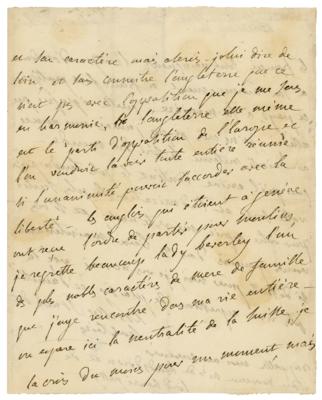 et son caractère mais alors j'oserai dire de
loin, et sans connoître l'angleterre que ce
n'est pas avec l'opposition que je me sens
en harmonie, l'angleterre elle même
est le parti d'opposition de l'europe et
l'on voudrait la voir toute entière réunie
si l'unanimité pouvoit s'accorder avec la
liberté les anglois qui étoient à genève
ont reçu l'ordre de partir pour
je regrette beaucoup lady beverley l'un
des plus nobles caractères de mère de famille
que j'aye rencontré dans ma vie entière
on espère ici la neutralité de la suisse, je
la crois du moins pour un moment mais